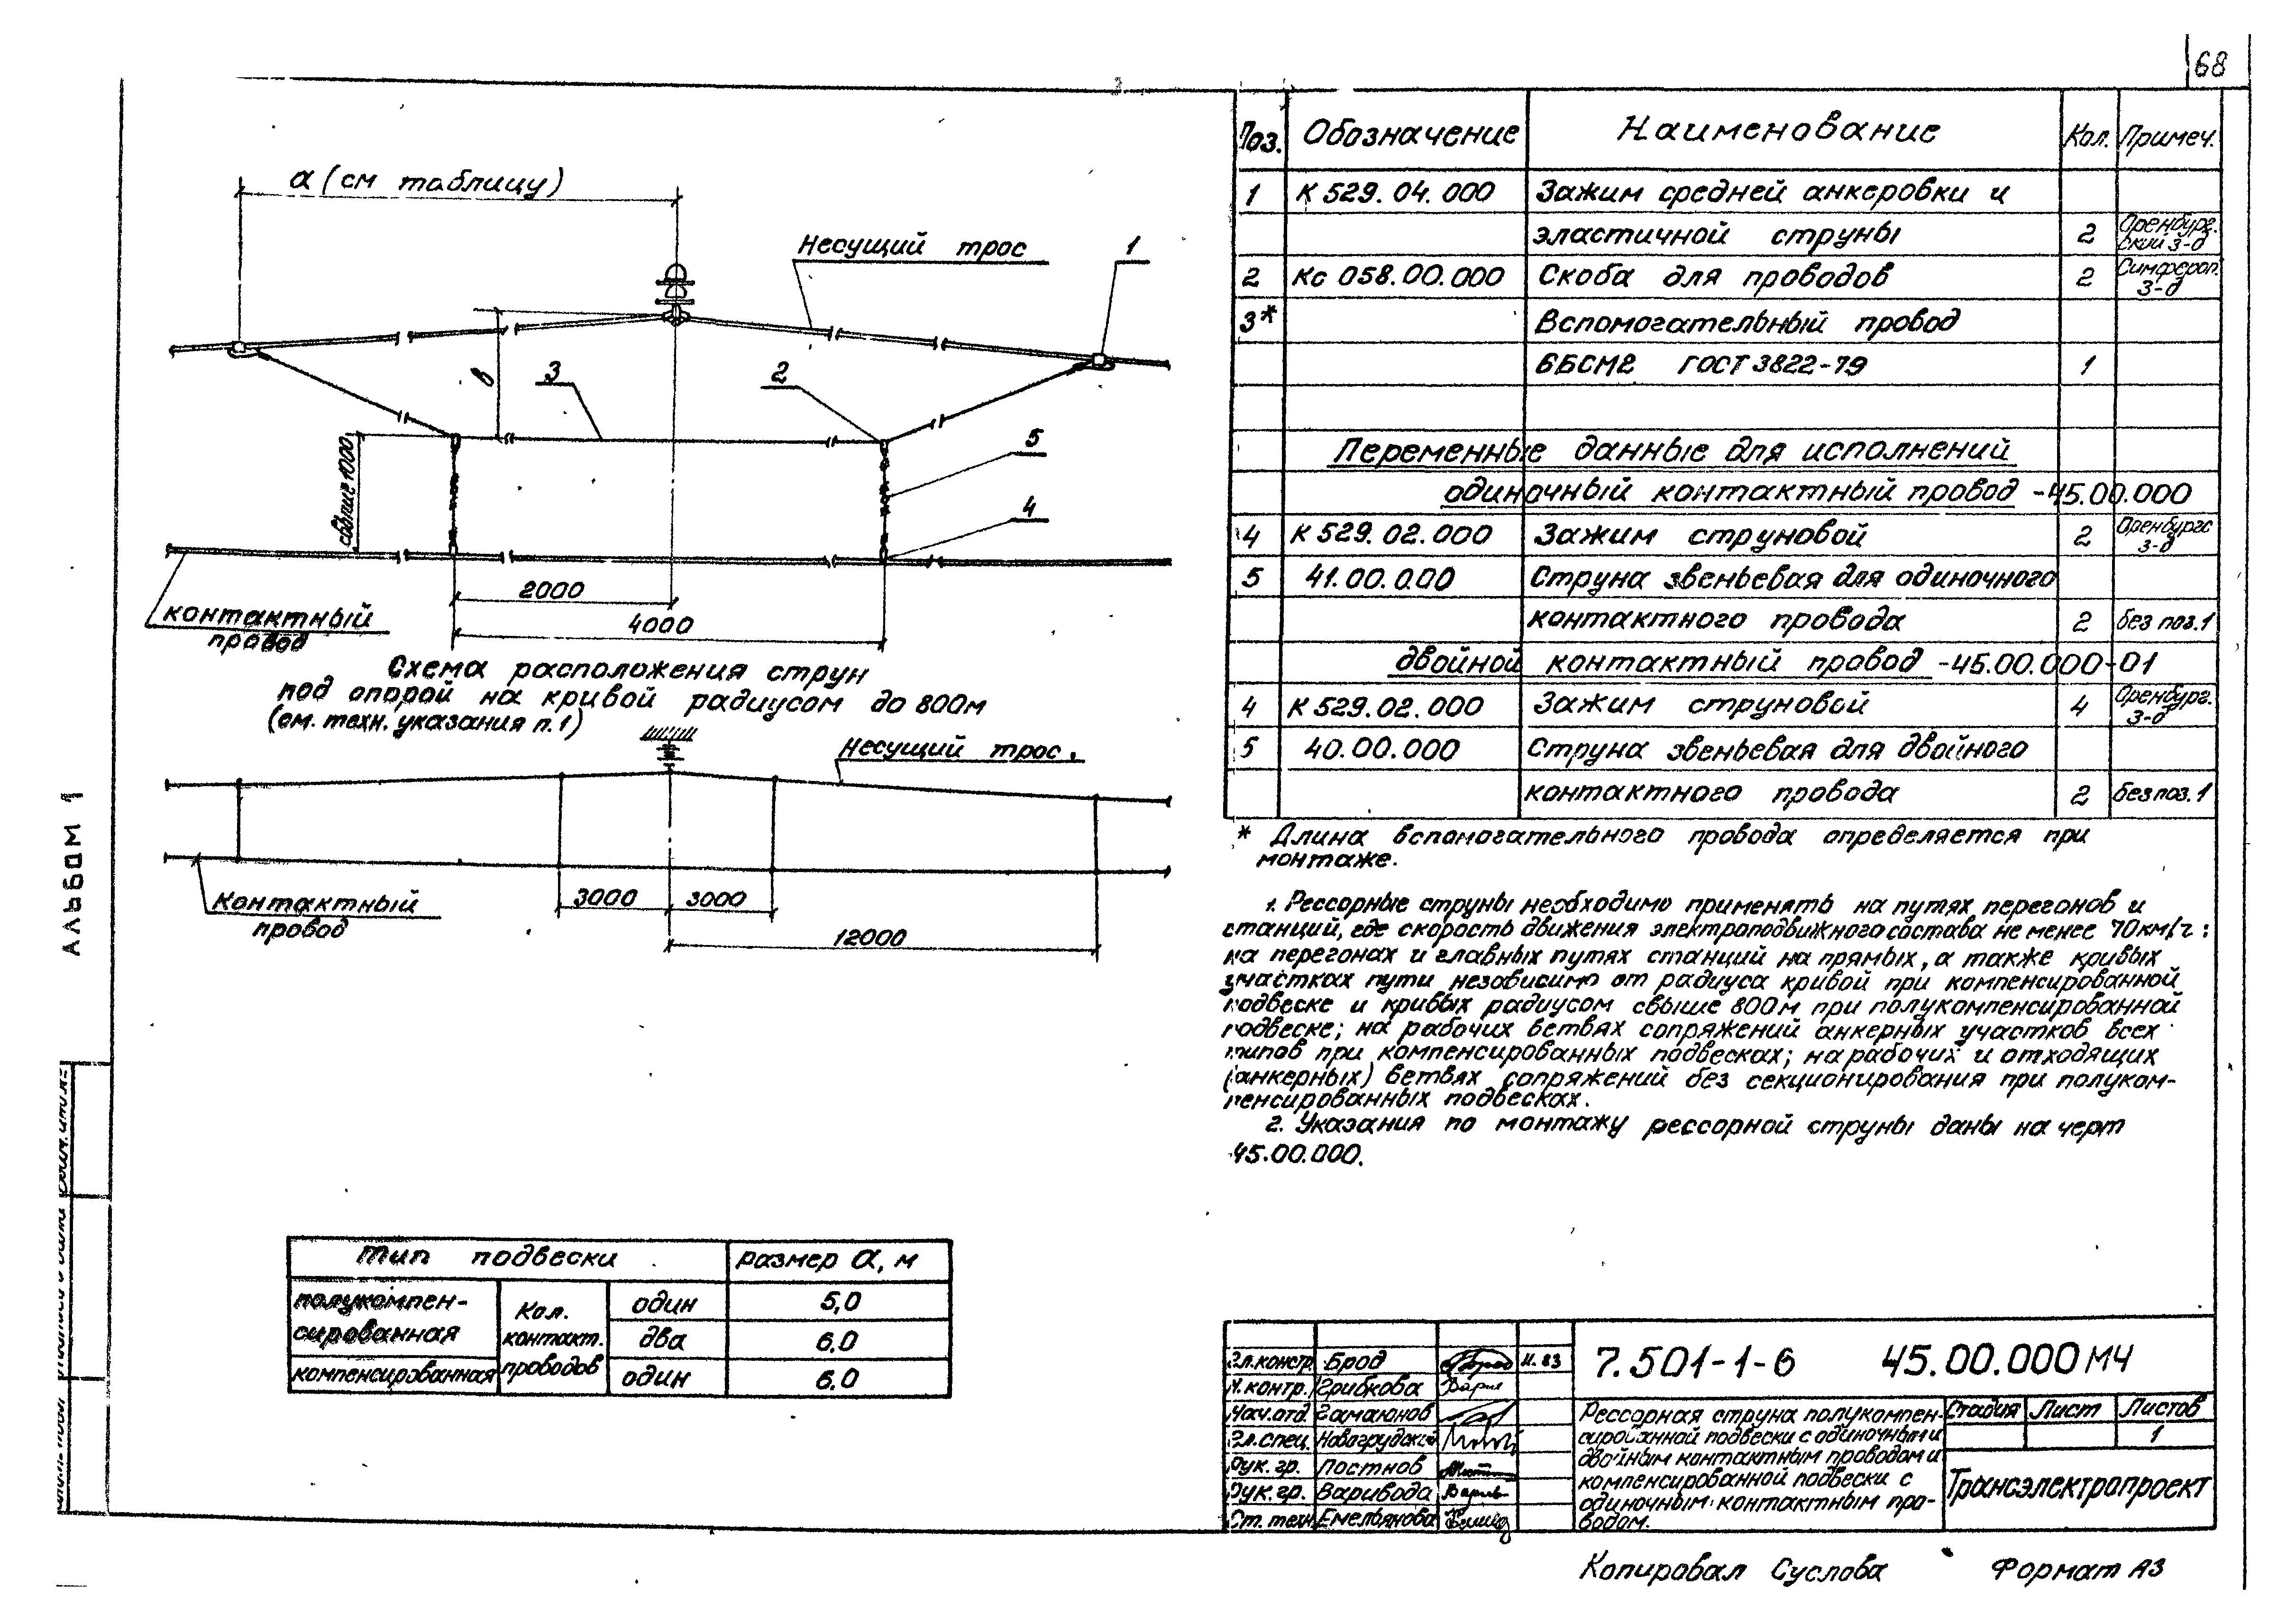 68
α (см таблицу)
Несущий трос
1
в
3
2
5
свыше 1000
4
2000
4000
контактный
провод
Схема расположения струн
под опорой на кривой радиусом до 800м
(см. техн. указания п.1)
Несущий трос.
Контактный
провод
3000 3000
12000
АЛЬБОМ 1
Тип подвески размер α, м
полукомпен-
сированная
Кол.
контакт.
проводов
один 5,0
два 6,0
компенсированная один 6.0
Поз. Обозначение Наименование Кол. Примеч.
1 К 529. 04. 000 Зажим средней анкеровки и
эластичной струны 2 Оренбург.
ский з-д
2 Кс 058.00.000 Скоба для проводов 2 Симфероп.
з-д
3* Вспомогательный провод
6БСМ2 ГОСТ 3822-79 1
Переменные данные для исполнений
одиночный контактный провод -45.00.000
4 К 529.02.000 Зажим струновой 2 Оренбургс
з-д
5 41.00.000 Струна звеньевая для одиночного
контактного провода 2 без поз.1
двойной контактный провод -45.00.000-01
4 К 529.02.000 Зажим струновой 4 Оренбург.
з-д
5 40.00.000 Струна звеньевая для двойного
контактного провода 2 без поз.1
* Длина вспомогательного провода определяется при
монтаже.
1. Рессорные струны необходимо применять на путях перегонов и
станций, где скорость движения электроподвижного состава не менее 70км/ч:
на перегонах и главных путях станций на прямых, а также кривых
участках пути независимо от радиуса кривой при компенсированной
подвеске и кривых радиусом свыше 800м при полукомпенсированной
подвеске; на рабочих ветвях сопряжений анкерных участков всех
типов при компенсированных подвесках; на рабочих и отходящих
(анкерных) ветвях сопряжений без секционирования при полуком-
пенсированных подвесках.
2. Указания по монтажу рессорной струны даны на черт
45.00.000.
Гл.констр. Брод 11.83
Н.контр. Грибкова
Нач.отд. Гамаюнов
Гл.спец. Новогрудский
Рук. гр. Постнов
Рук. гр. Варивода
Ст. техн. Емельянова
7.501-1-6 45.00.000 МЧ
Рессорная струна полукомпен-
сированной подвески с одиночным и
двойным контактным проводом и
компенсированной подвески с
одиночным контактным про-
водом.
Стадия Лист Листов
1
Трансэлектропроект
Копировал Суслова Формат А3